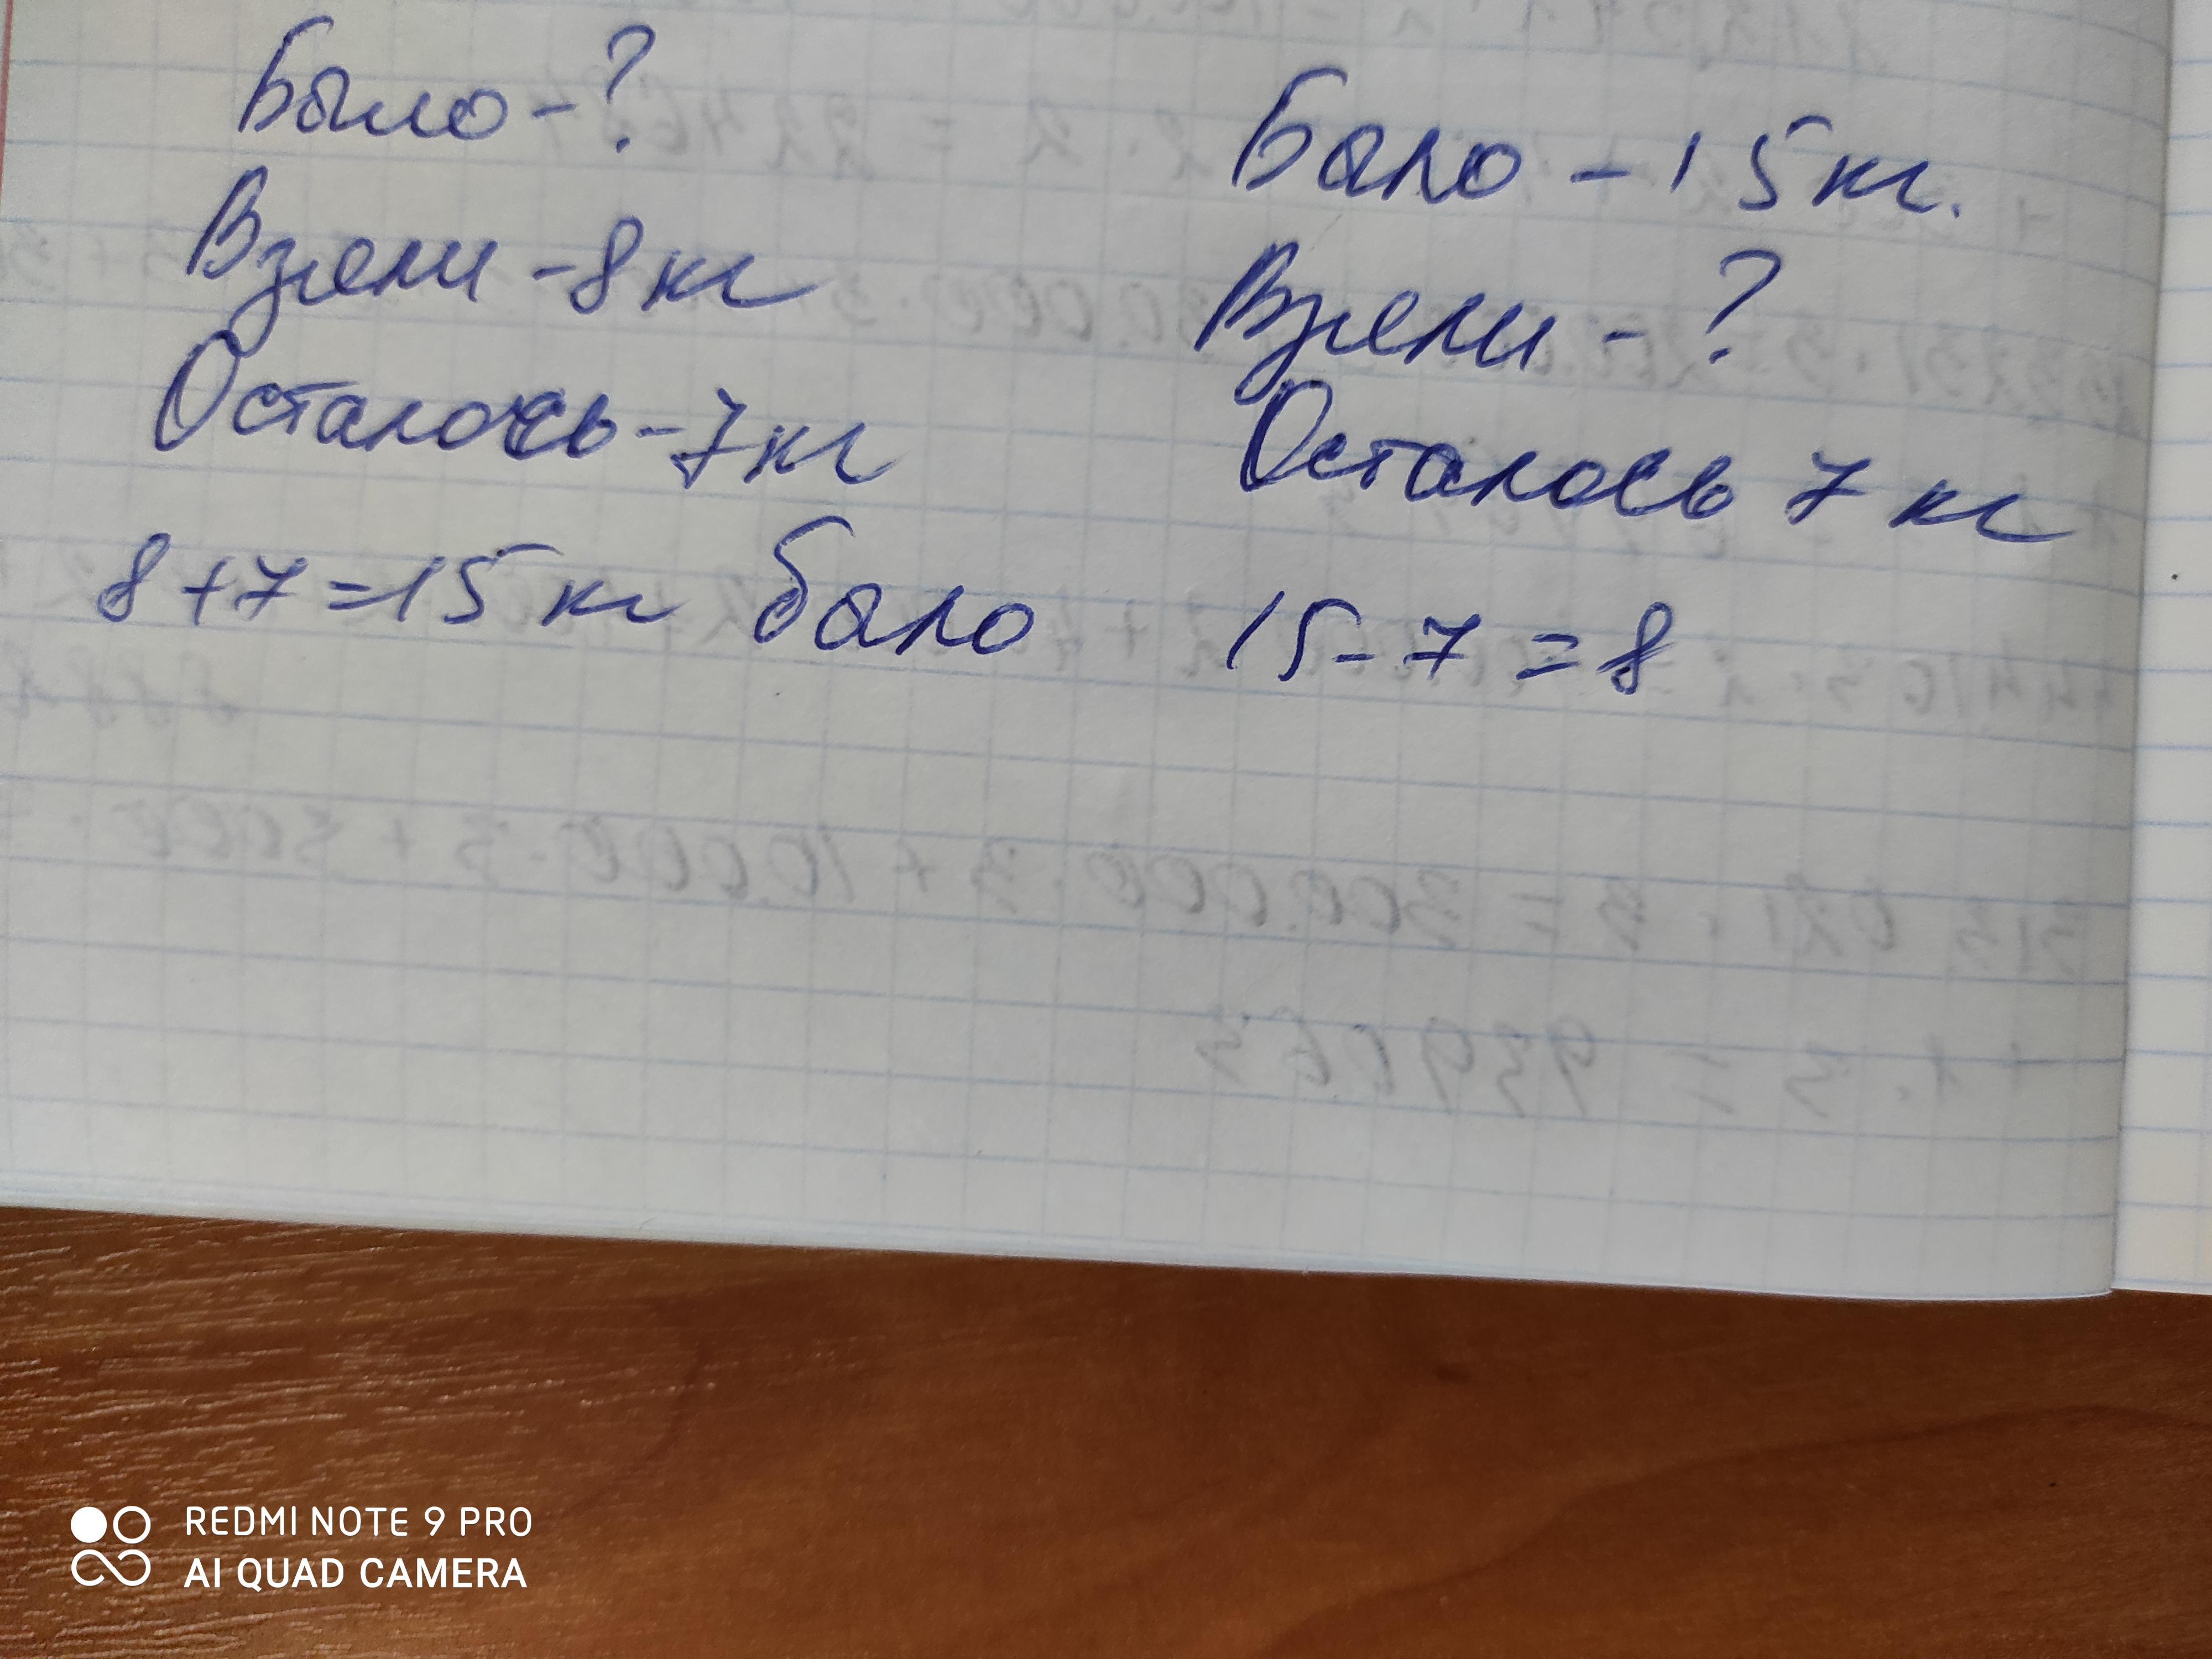 Было - ?
Взяли - 8 кг
Осталось - 7 кг
8 + 7 = 15 кг было
Было - 15 кг.
Взяли - ?
Осталось 7 кг
15 - 7 = 8
REDMI NOTE 9 PRO
AI QUAD CAMERA